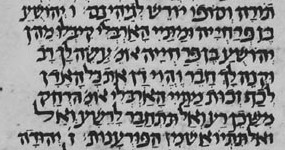 תורה וסופו יורש לגיהינם ו יהושע
בן פרחייה ומתיי הארבלי קיבלו מהן
יהושע בן פרחייה אומ' עשה לך רב
וקנה לך חבר והוי דן את כל האדם
לכף זכות מתיי הארבלי אומ' הרחק
משכן רע ואל תתחבר לרשע ואל
ואל תתייאש מן הפורענות ז יהודה